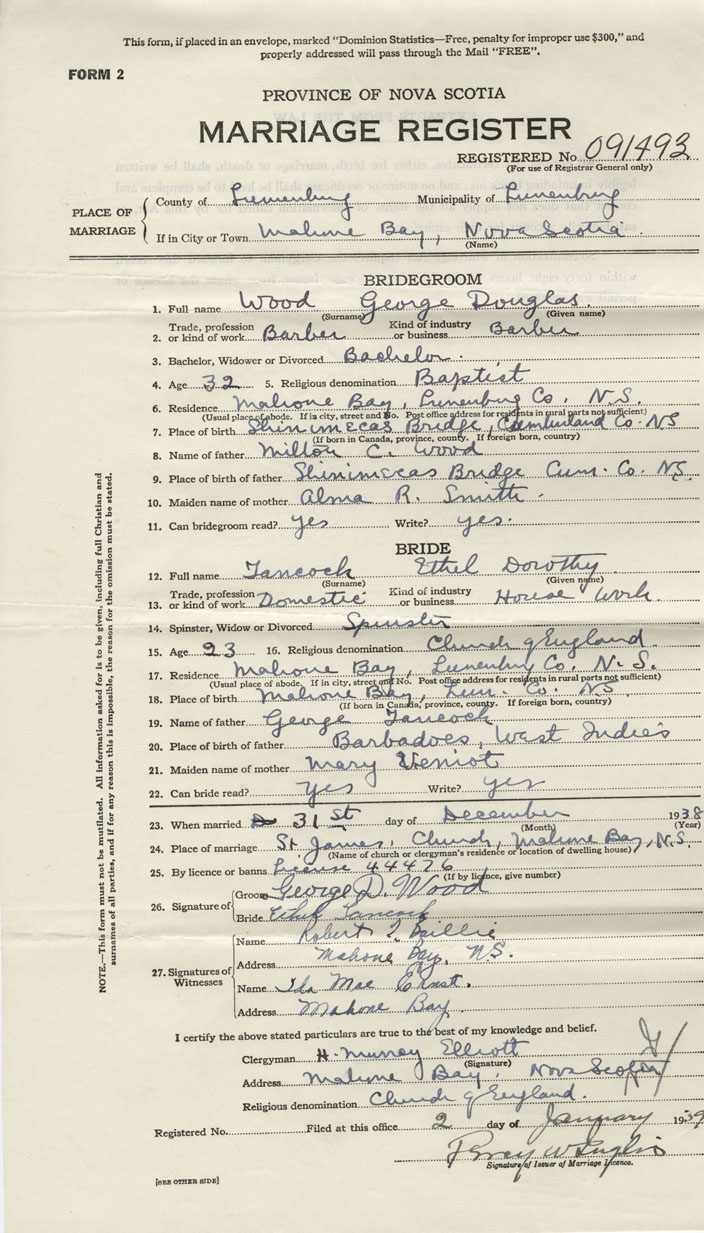 This form, if placed in an envelope, marked "Dominion Statistics—Free, penalty for improper use $300," and
properly addressed will pass through the Mail "FREE".
FORM 2
PROVINCE OF NOVA SCOTIA
MARRIAGE REGISTER
REGISTERED No. 091493
(For use of Registrar General only)
PLACE OF MARRIAGE
County of Lunenburg Municipality of Lunenburg
If in City or Town Mahone Bay, Nova Scotia
(Name)
BRIDEGROOM
1. Full name Wood George Douglas.
(Surname) (Given name)
2. Trade, profession or kind of work Barber Kind of industry or business Barber
3. Bachelor, Widower or Divorced Bachelor.
4. Age 32 5. Religious denomination Baptist
6. Residence Mahone Bay, Lunenburg Co. N.S.
(Usual place of abode. If in city, street and No. Post office address for residents in rural parts not sufficient)
7. Place of birth Shinimecas Bridge, Cumberland Co. NS
(If born in Canada, province, county. If foreign born, country)
8. Name of father Milton C. Wood
9. Place of birth of father Shinimecas Bridge Cum. Co. NS.
10. Maiden name of mother Alma R. Smith.
11. Can bridegroom read? yes Write? yes.
BRIDE
12. Full name Tancock Ethel Dorothy
(Surname) (Given name)
13. Trade, profession or kind of work Domestic Kind of industry or business House Work
14. Spinster, Widow or Divorced Spinster
15. Age 23 16. Religious denomination Church of England
17. Residence Mahone Bay, Lunenburg Co. N.S.
(Usual place of abode. If in city, street and No. Post office address for residents in rural parts not sufficient)
18. Place of birth Mahone Bay, Lun. Co. NS
(If born in Canada, province, county. If foreign born, country)
19. Name of father George Tancock
20. Place of father Barbadoes, West Indies
21. Maiden name of mother Mary Veniot
22. Can bride read? yes Write? yes
23. When married 31st day of December 1938
(Month) (Year)
24. Place of marriage St James. Church, Mahone Bay, N.S.
(Name of church or clergyman's residence or location of dwelling house)
25. By licence or banns License 44476
(If by licence, give number)
26. Signature of
Groom George D. Wood
Bride Ethel Tancock
27. Signatures of Witnesses
Name Robert Baillie
Address Mahone Bay, N.S.
Name Ida Mae Ernst.
Address Mahone Bay.
I certify the above stated particulars are true to the best of my knowledge and belief.
Clergyman H. Murray Elliott
(Signature)
Address Mahone Bay, Nova Scotia
Religious denomination Church of England.
Registered No. Filed at this office 2 day of January 1939
Signature of Issuer of Marriage Licence.
[SEE OTHER SIDE]
NOTE.—This form must not be mutilated. All information asked for is to be given, including full Christian and
surnames of all parties, and if for any reason this is impossible, the reason for the omission must be stated.